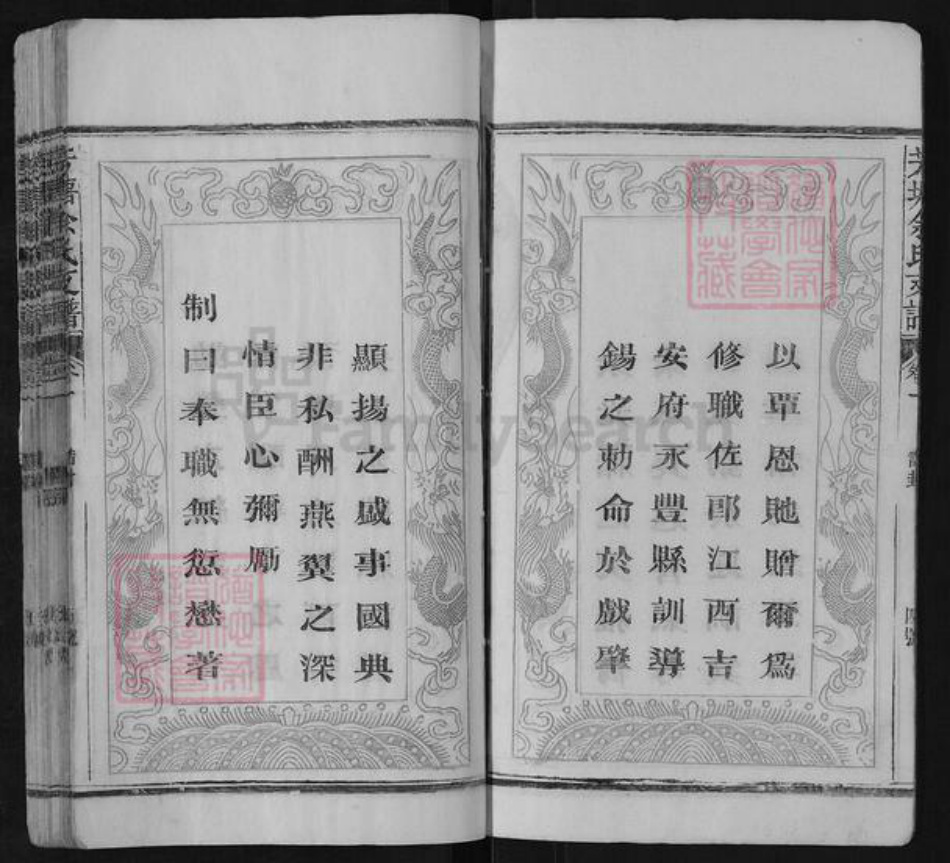 以覃恩貤贈爾爲
修職佐郎江西吉
安府永豐縣訓導
錫之勅命於戲肇
顯揚之盛事國典
非私酬燕翼之深
情臣心彌勵
制曰奉職無愆懋著
余氏支譜
卷一
FamilySearch